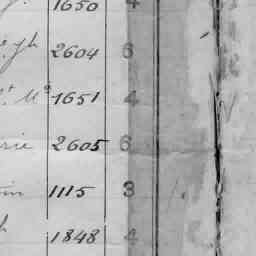 1650 4
2604 6
1651 4
rie 2605 6
1115 3
1848 4